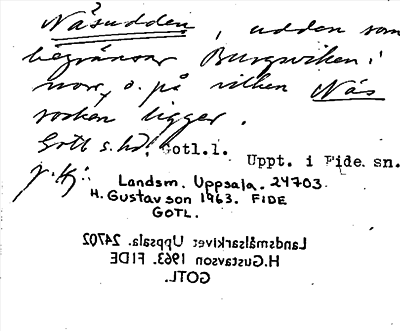 Näsudden, udden som
begränsar Burgviken i
norr, o. på vilken Näs
socken ligger.
Gotl s. hd. Gotl.l. Uppt. i Fide sn.
Landsm. Uppsala. 24703
H. Gustavson 1963. FIDE
GOTL.
Landsmålsarkivet Uppsala. 24702
H.Gustavson 1963. FIDE
GOTL.